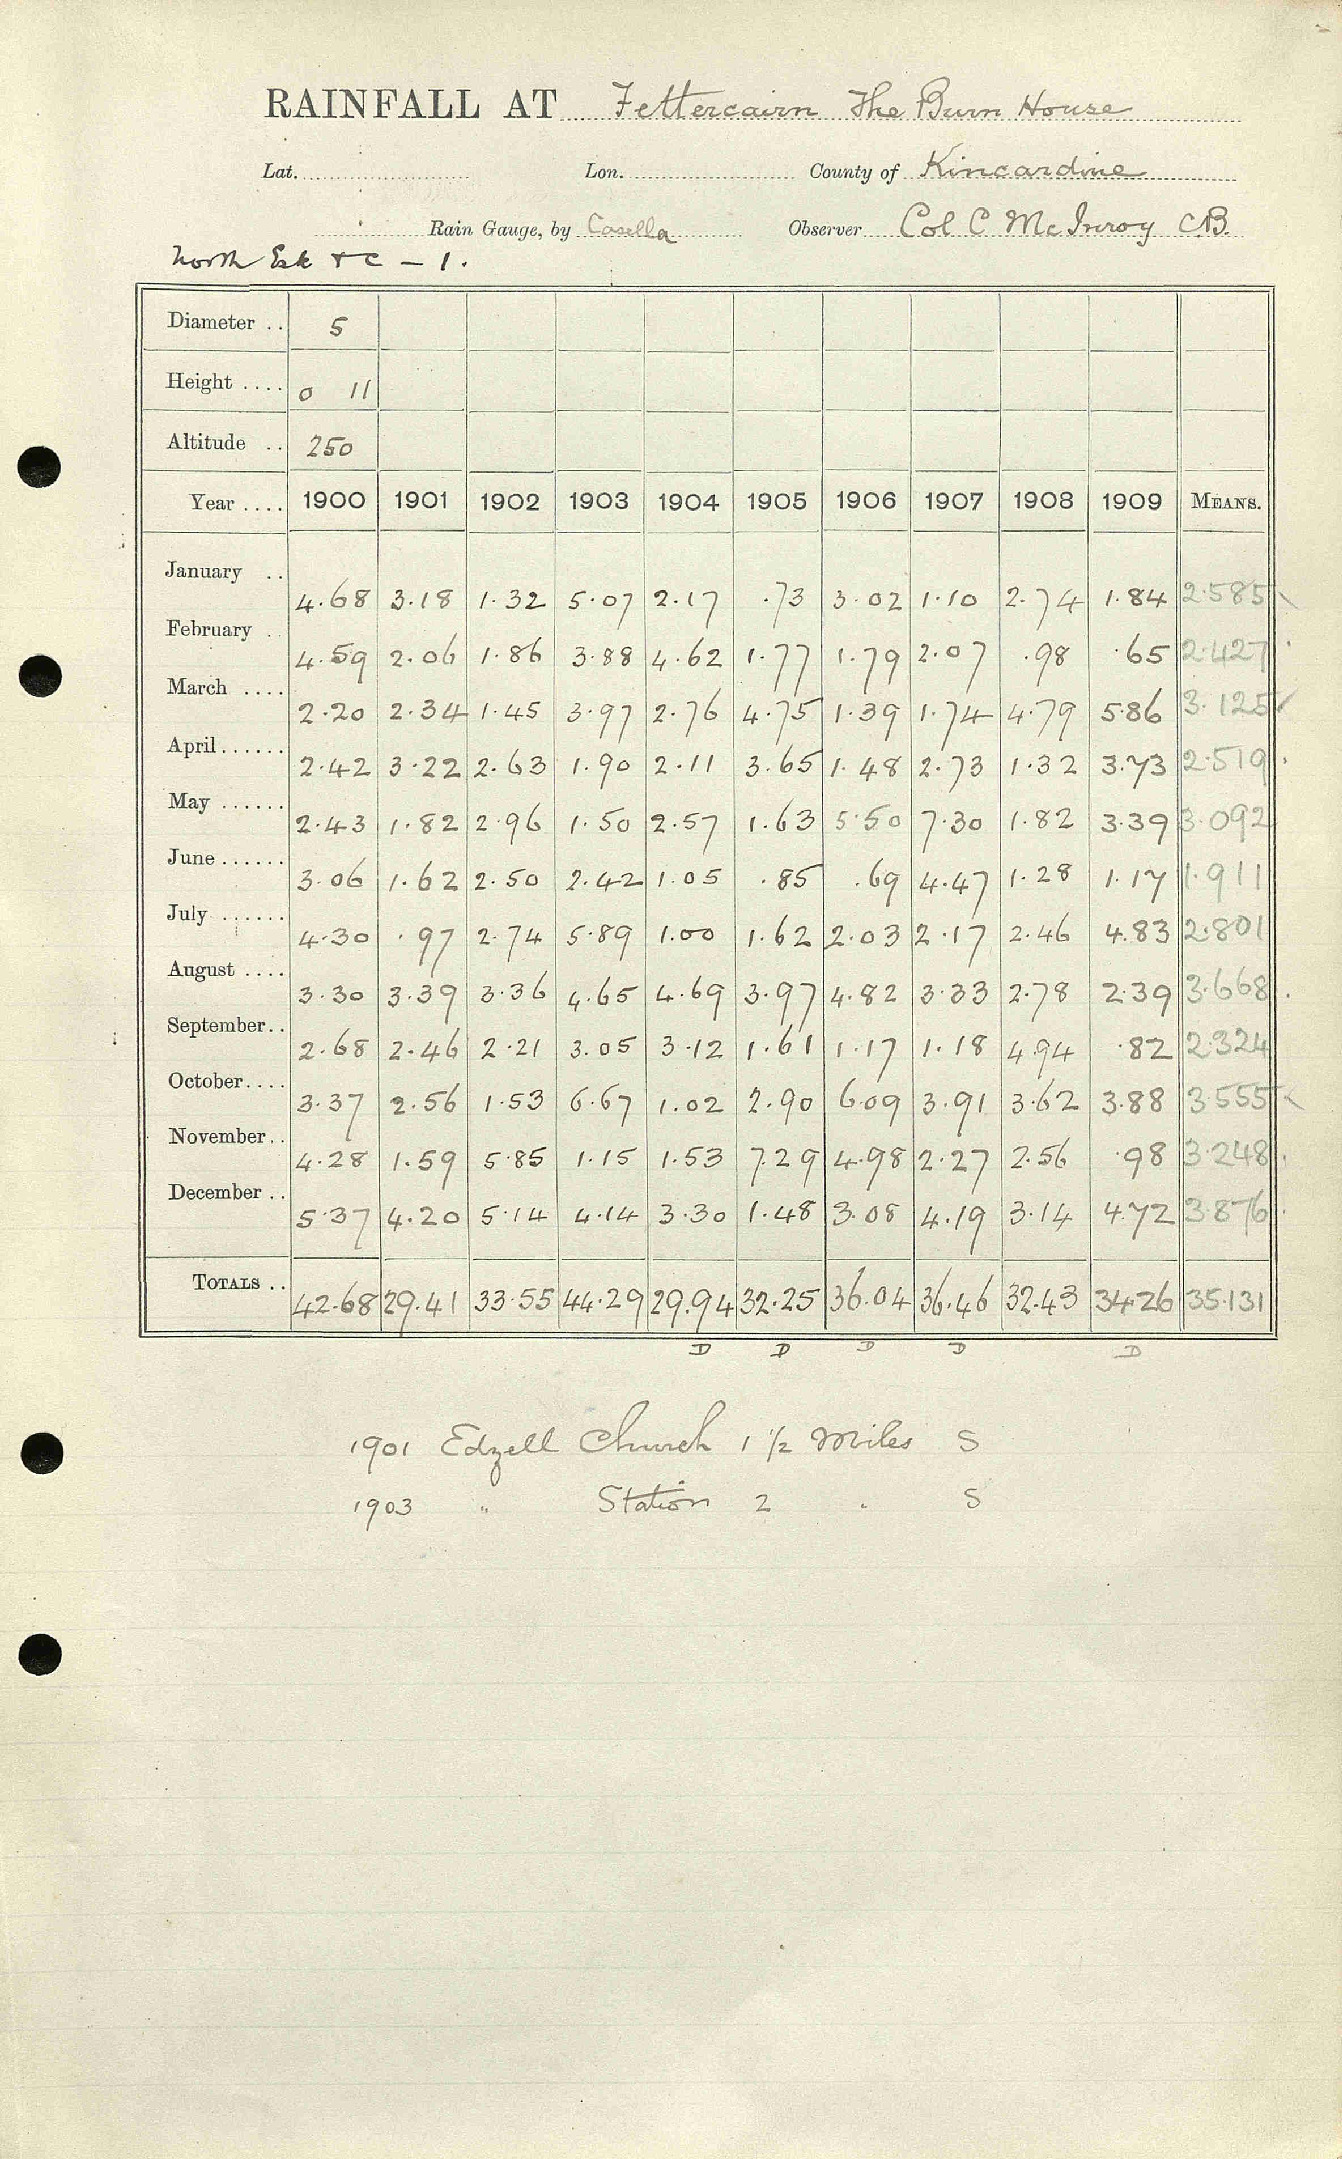 RAINFALL AT Fettercairn The Burn House
Lat. Lon. County of Kincardine
Rain Gauge, by Casella Observer Col C McInroy C.B.
North Esk &c – 1.
Diameter .. 5
Height .... 0 11
Altitude .. 250
Year .... 1900 1901 1902 1903 1904 1905 1906 1907 1908 1909 MEANS.
January .. 4.68 3.18 1.32 5.07 2.17 .73 3.02 1.10 2.74 1.84 2.585
February .. 4.59 2.06 1.86 3.88 4.62 1.77 1.79 2.07 .98 .65 2.427
March .... 2.20 2.34 1.45 3.97 2.76 4.75 1.39 1.74 4.79 5.86 3.125
April...... 2.42 3.22 2.63 1.90 2.11 3.65 1.48 2.73 1.32 3.73 2.519
May ...... 2.43 1.82 2.96 1.50 2.57 1.63 5.50 7.30 1.82 3.39 3.092
June...... 3.06 1.62 2.50 2.42 1.05 .85 .69 4.47 1.28 1.17 1.911
July ...... 4.30 .97 2.74 5.89 1.00 1.62 2.03 2.17 2.46 4.83 2.801
August .... 3.30 3.39 3.36 4.65 4.69 3.97 4.82 3.33 2.78 2.39 3.668
September.. 2.68 2.46 2.21 3.05 3.12 1.61 1.17 1.18 4.94 .82 2.324
October.... 3.37 2.56 1.53 6.67 1.02 2.90 6.09 3.91 3.62 3.88 3.555
November.. 4.28 1.59 5.85 1.15 1.53 7.29 4.98 2.27 2.56 .98 3.248
December .. 5.37 4.20 5.14 4.14 3.30 1.48 3.08 4.19 3.14 4.72 3.876
TOTALS .. 42.68 29.41 33.55 44.29 29.94 32.25 36.04 36.46 32.43 34.26 35.131
D D D D D
1901 Edzell Church 1 1/2 Miles S
1903 " Station 2 " S